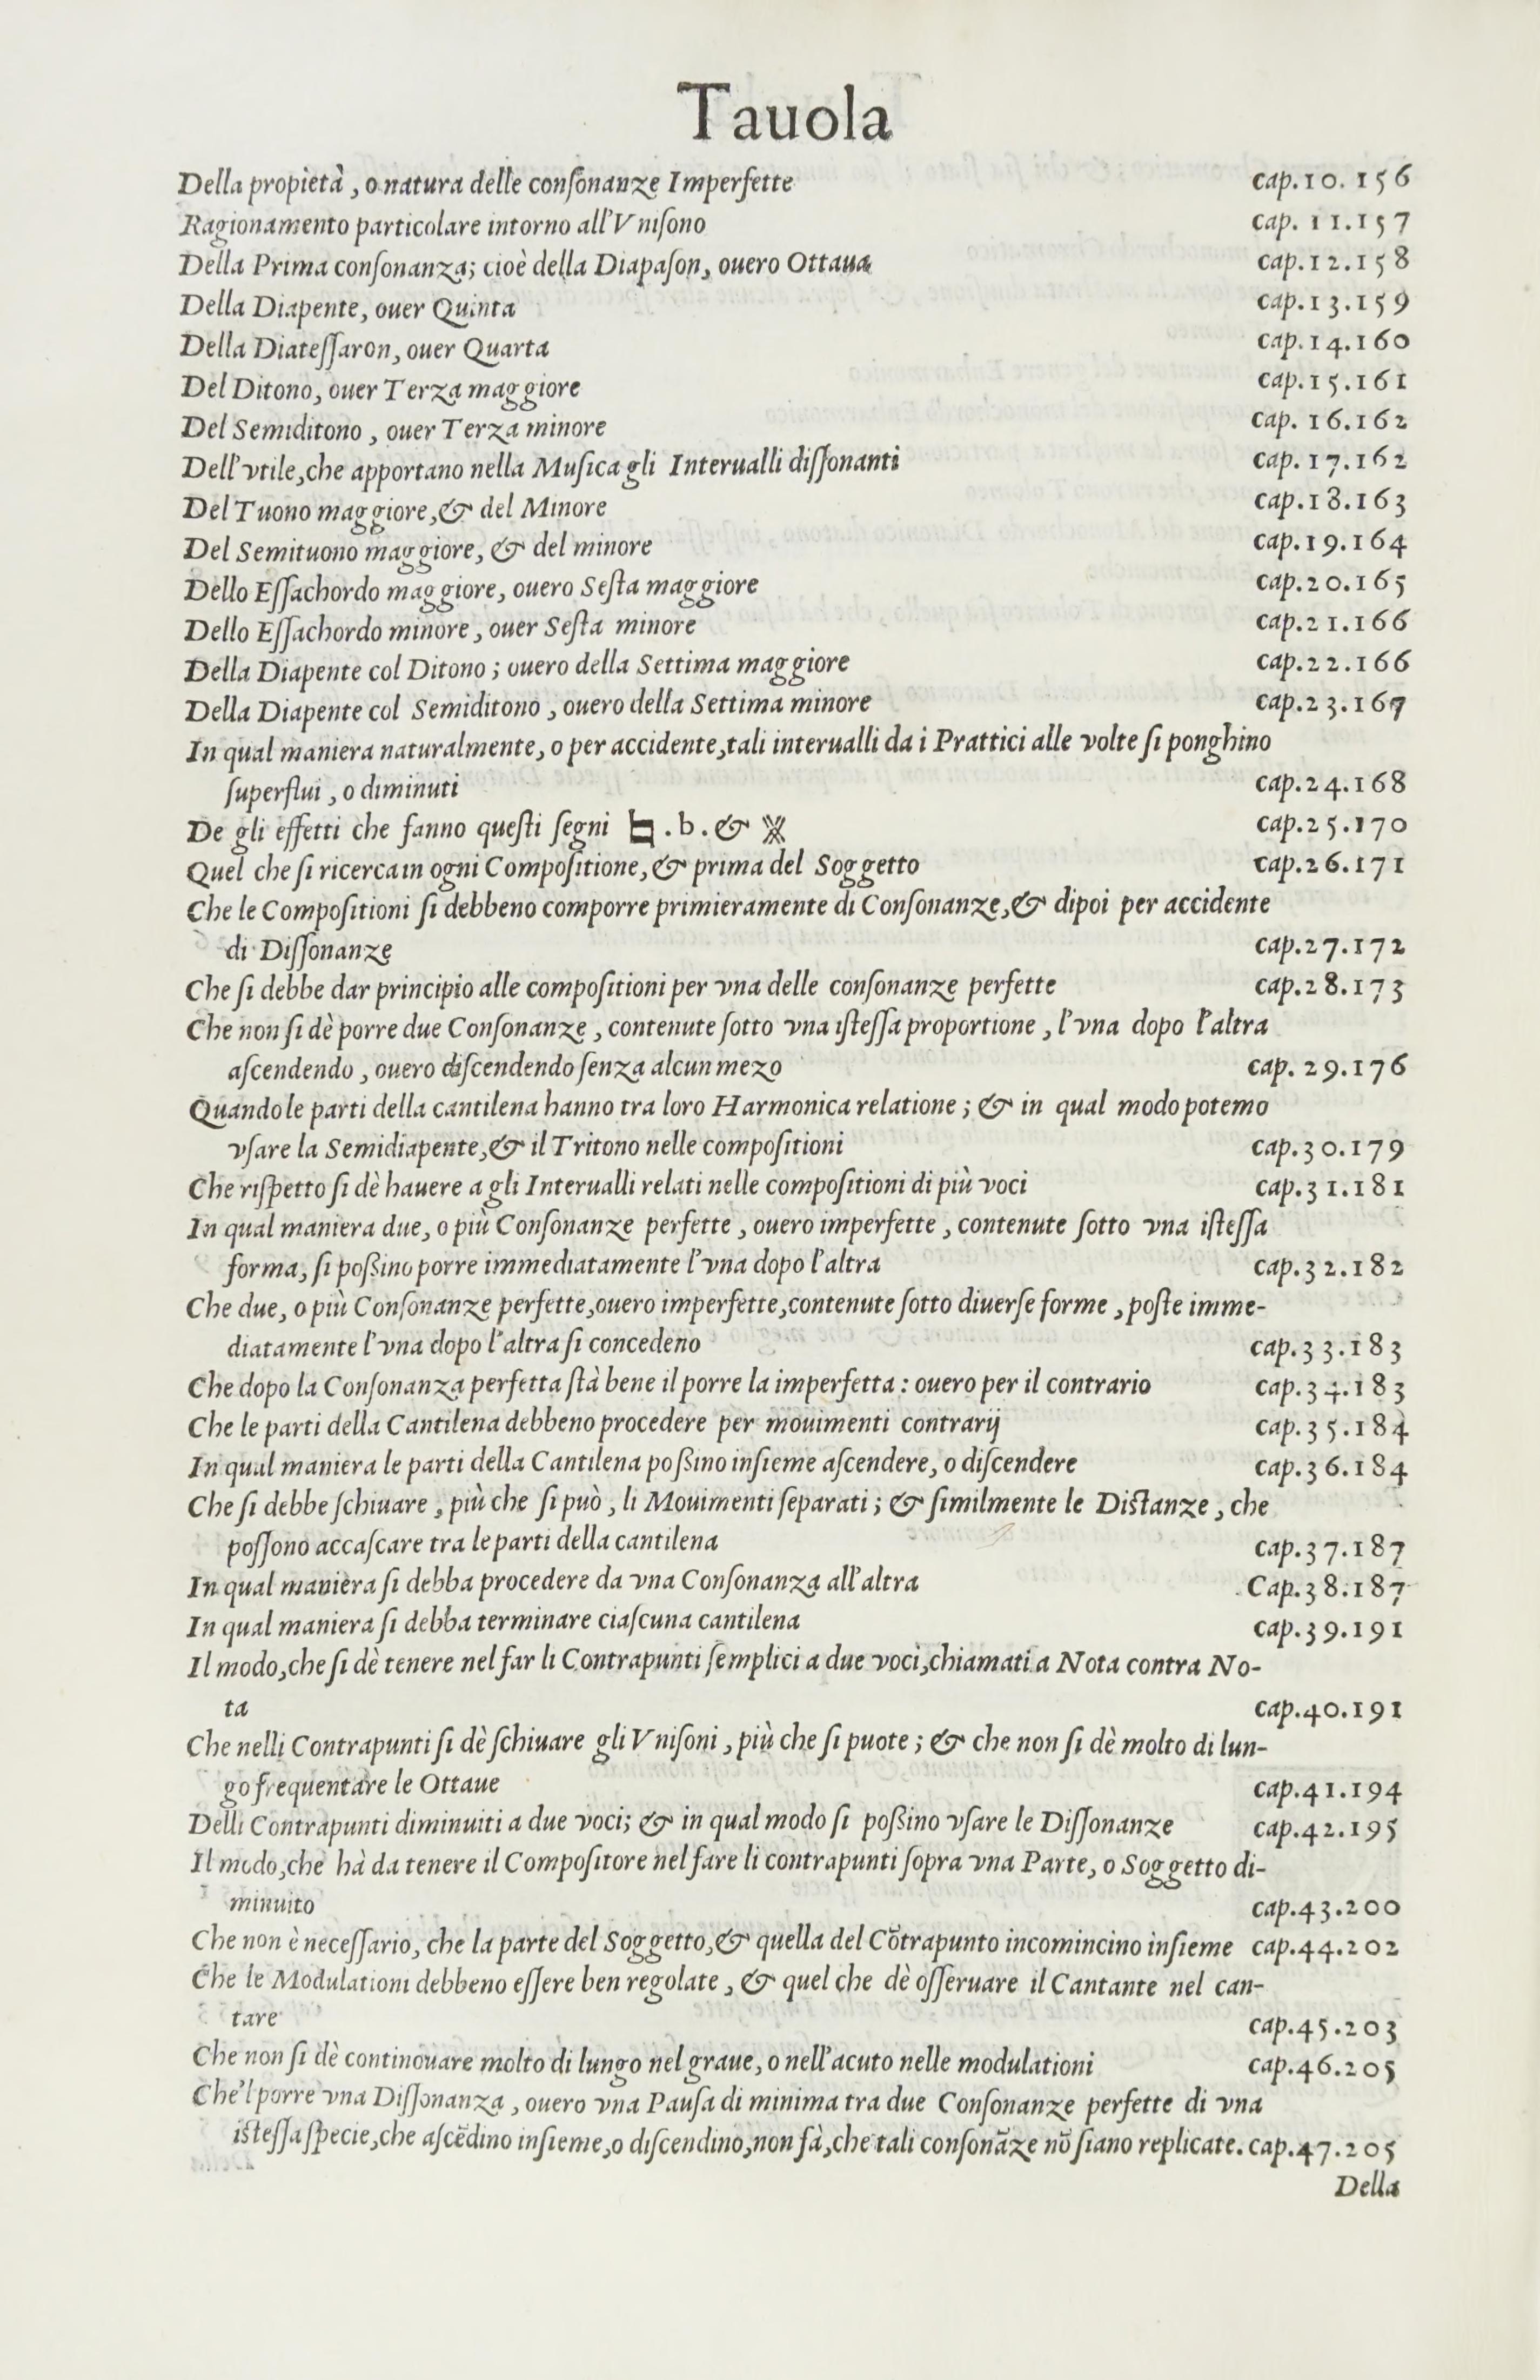 Tauola
Della propietà, o natura delle conſonanze Imperfette cap.10.156
Ragionamento particolare intorno all'Vniſono cap. 11.157
Della Prima conſonanza; cioè della Diapaſon, ouero Ottaua cap.12.158
Della Diapente, ouer Quinta cap.13.159
Della Diateſſaron, ouer Quarta cap.14.160
Del Ditono, ouer Terza maggiore cap.15.161
Del Semiditono, ouer Terza minore cap. 16.162
Dell'vtile, che apportano nella Muſica gli Interualli diſſonanti cap. 17.162
Del Tuono maggiore, & del Minore cap.18.163
Del Semituono maggiore, & del minore cap.19.164
Dello Eſſachordo maggiore, ouero Seſta maggiore cap.20.165
Dello Eſſachordo minore, ouer Seſta minore cap.21.166
Della Diapente col Ditono; ouero della Settima maggiore cap.22.166
Della Diapente col Semiditono, ouero della Settima minore cap.23.167
In qual maniera naturalmente, o per accidente, tali interualli da i Prattici alle volte ſi ponghino
ſuperflui, o diminuti cap.24.168
De gli effetti che fanno queſti ſegni ♮ .b. & 𝄪 cap.25.170
Quel che ſi ricerca in ogni Compoſitione, & prima del Soggetto cap.26.171
Che le Compoſitioni ſi debbeno comporre primieramente di Conſonanze, & dipoi per accidente
di Diſſonanze cap.27.172
Che ſi debbe dar principio alle compoſitioni per vna delle conſonanze perfette cap.28.173
Che non ſi dè porre due Conſonanze, contenute ſotto vna iſteſſa proportione, l'vna dopo l'altra
aſcendendo, ouero diſcendendo ſenza alcun mezo cap. 29.176
Quando le parti della cantilena hanno tra loro Harmonica relatione; & in qual modo potemo
vſare la Semidiapente, & il Tritono nelle compoſitioni cap.30.179
Che riſpetto ſi dè hauere a gli Interualli relati nelle compoſitioni di più voci cap.31.181
In qual maniera due, o più Conſonanze perfette, ouero imperfette, contenute ſotto vna iſteſſa
forma, ſi poßino porre immediatamente l'vna dopo l'altra cap.32.182
Che due, o più Conſonanze perfette, ouero imperfette, contenute ſotto diuerſe forme, poſte imme-
diatamente l'vna dopo l'altra ſi concedeno cap.33.183
Che dopo la Conſonanza perfetta ſtà bene il porre la imperfetta: ouero per il contrario cap.34.183
Che le parti della Cantilena debbeno procedere per mouimenti contrarij cap.35.184
In qual maniera le parti della Cantilena poßino inſieme aſcendere, o diſcendere cap.36.184
Che ſi debbe ſchiuare, più che ſi può, li Mouimenti ſeparati; & ſimilmente le Diſtanze, che
poſſono accaſcare tra le parti della cantilena cap.37.187
In qual maniera ſi debba procedere da vna Conſonanza all'altra Cap.38.187
In qual maniera ſi debba terminare ciaſcuna cantilena cap.39.191
Il modo, che ſi dè tenere nel far li Contrapunti ſemplici a due voci, chiamati a Nota contra No-
ta cap.40.191
Che nelli Contrapunti ſi dè ſchiuare gli Vniſoni, più che ſi puote; & che non ſi dè molto di lun-
go frequentare le Ottaue cap.41.194
Delli Contrapunti diminuiti a due voci; & in qual modo ſi poßino vſare le Diſſonanze cap.42.195
Il modo, che hà da tenere il Compoſitore nel fare li contrapunti ſopra vna Parte, o Soggetto di-
minuito cap.43.200
Che non è neceſſario, che la parte del Soggetto, & quella del Cõtrapunto incomincino inſieme cap.44.202
Che le Modulationi debbeno eſſere ben regolate, & quel che dè oſſeruare il Cantante nel can-
tare cap.45.203
Che non ſi dè continouare molto di lungo nel graue, o nell'acuto nelle modulationi cap.46.205
Che'l porre vna Diſſonanza, ouero vna Pauſa di minima tra due Conſonanze perfette di vna
iſteſſa ſpecie, che aſcẽdino inſieme, o diſcendino, non fà, che tali conſonãze nõ ſiano replicate. cap.47.205
Della